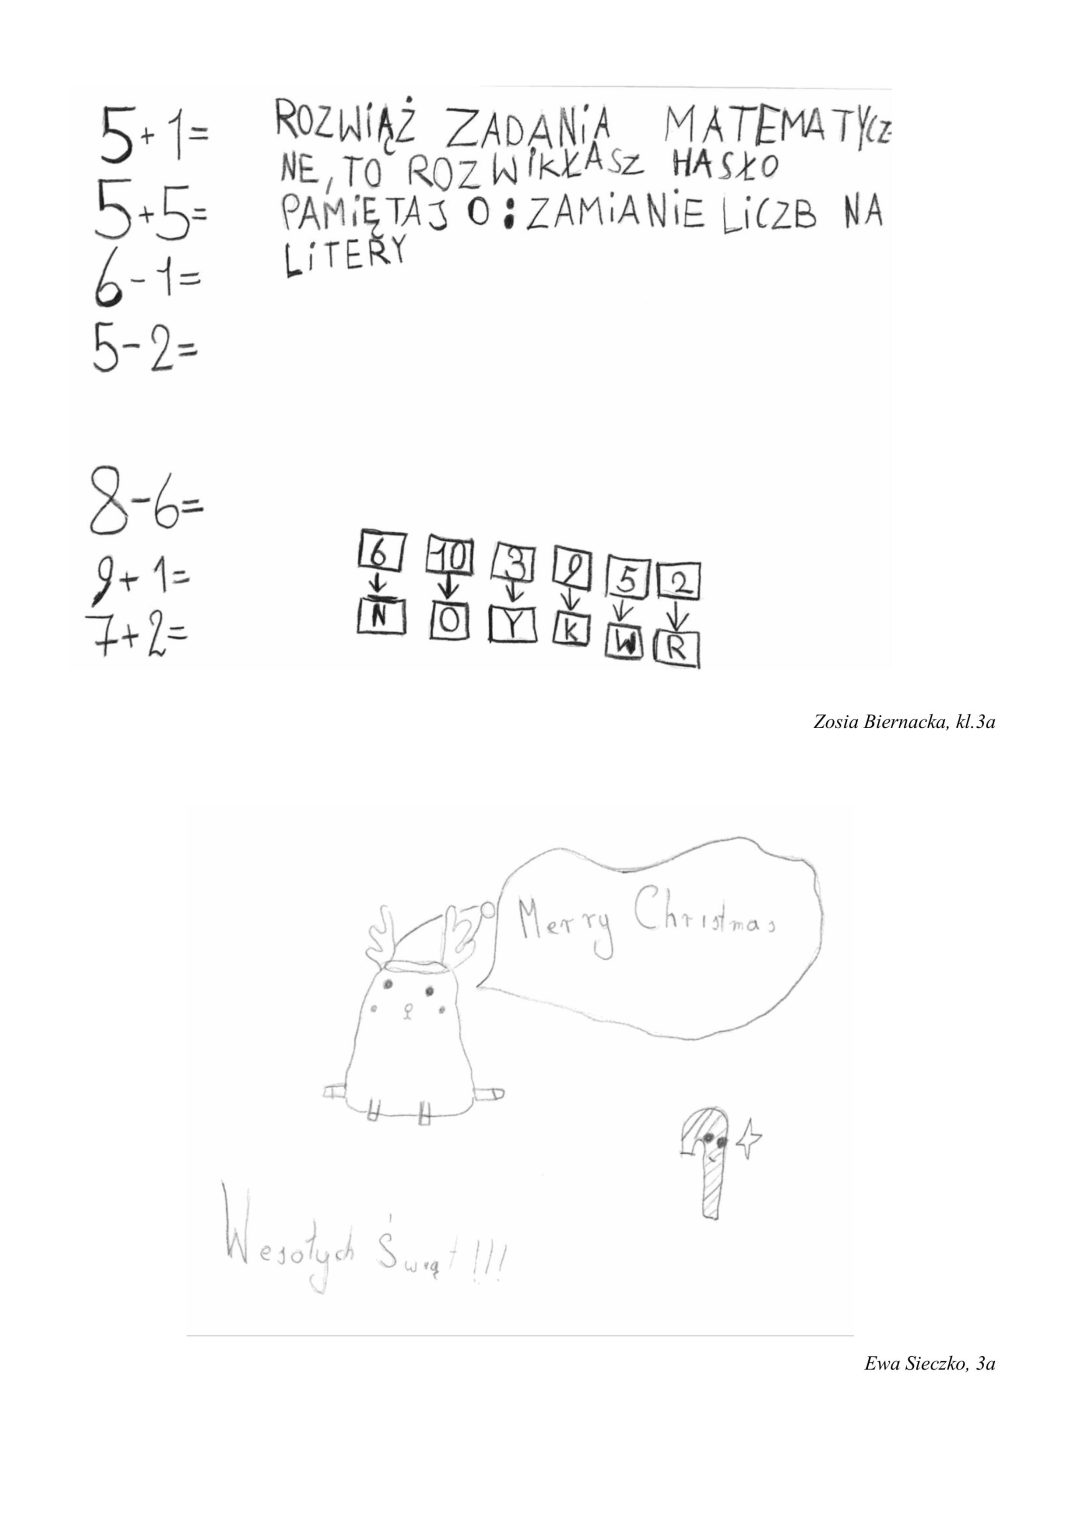 5+1=
5+5=
6-1=
5-2=
8-6=
9+1=
7+2=
ROZWiĄŻ ZADANiA MATEMATYCZ-
NE, TO ROZWiKŁASZ HASŁO
PAMiĘTAJ O: ZAMiANiE LiCZB NA
LiTERY
6 10 3 9 5 2
N O Y K W R
Zosia Biernacka, kl.3a
Merry Christmas
Wesołych Świąt!!!
Ewa Sieczko, 3a